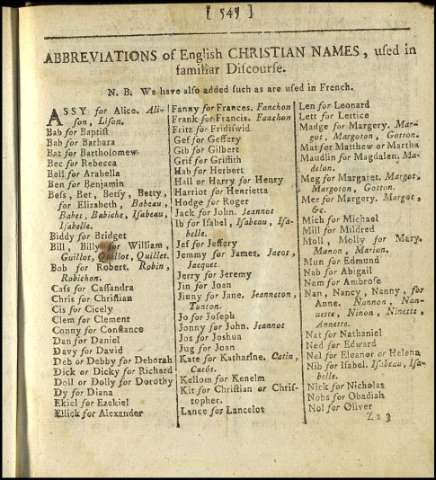 [ 545 ]
ABBREVIATIONS of English CHRISTIAN NAMES, used in
familiar Discourse.
N. B. We have also added such as are used in French.
ASSY for Alice. Ali-
son, Lison.
Bab for Baptist
Bab for Barbara
Bat for Bartholomew
Bec for Rebecca
Bell for Arabella
Ben for Benjamin
Bess, Bet, Betsy, Betty,
for Elizabeth, Babeau,
Babet, Babiche, Isabeau,
Isabelle.
Biddy for Bridget
Bill, Billy for William,
Guillot, Quillot, Quillet.
Bob for Robert. Robin,
Robichon.
Cass for Cassandra
Chris for Christian
Cis for Cicely
Clem for Clement
Conny for Constance
Dan for Daniel
Davy for David
Deb or Debby for Deborah
Dick or Dicky for Richard
Doll or Dolly for Dorothy
Dy for Diana
Ekiel for Ezekiel
Ellick for Alexander
Fanny for Frances. Fanchon
Frank for Francis. Fanchon
Fritz for Fridiswid
Gef for Geffery
Gib for Gilbert
Grif for Griffith
Hab for Herbert
Hall or Harry for Henry
Harriot for Henrietta
Hodge for Roger
Jack for John. Jeannot
Ib for Isabel, Isabeau, Isa-
belle.
Jef for Jeffery
Jemmy for James. Jacot,
Jacquet.
Jerry for Jeremy
Jin for Joan
Jinny for Jane, Jeanneton,
Tonton.
Jo for Joseph
Jonny for John. Jeannot
Jos for Joshua
Jug for Joan
Kate for Katharine. Catin,
Catos.
Kellom for Kenelm
Kit for Christian or Chris-
topher.
Lance for Lancelot
Len for Leonard
Lett for Lettice
Madge for Margery. Mar-
got, Margoton, Gotton.
Mat for Matthew or Martha
Maudlin for Magdalen. Ma-
delon.
Meg for Margaret. Margot,
Margoton, Gotton.
Mer for Margery. Margot,
&c.
Mich for Michael
Mill for Mildred
Moll, Molly for Mary.
Manon, Marion.
Mun for Edmund
Nab for Abigail
Nam for Ambrose
Nan, Nancy, Nanny, for
Anne. Nannon, Nan-
nette, Ninon, Ninette,
Annette.
Nat for Nathaniel
Ned for Edward
Nel for Eleanor or Helena
Nib for Isabel. Isabeau, Isa-
belle.
Nick for Nicholas
Nobs for Obadiah
Nol for Oliver
Zz 3